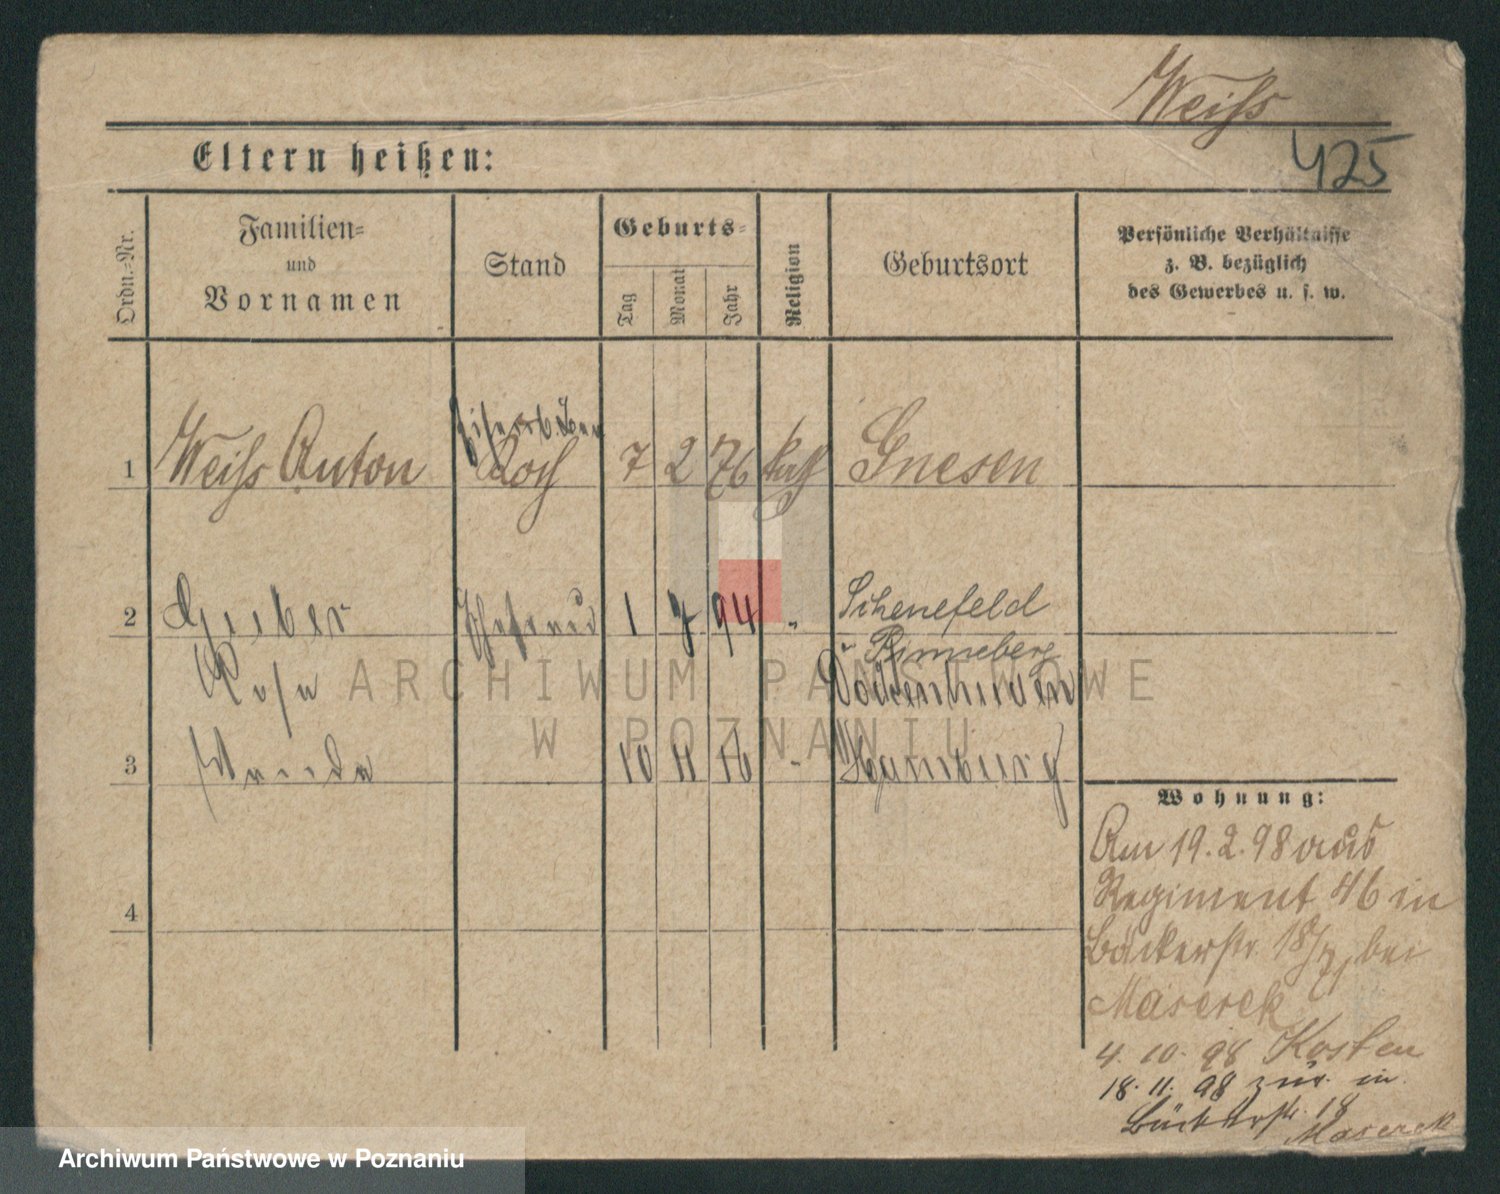 Weiſs
425
Eltern heißen:
Ordn.=Nr.
Familien=
und
Vornamen
Stand
Geburts=
Tag
Monat
Jahr
Religion
Geburtsort
Persönliche Verhältnisse
z. B. bezüglich
des Gewerbes u. s. w.
1 Weiſs Anton Koch 7 2 76 kath Gnesen
2 Ehefrau 1 7 94 " Schenefeld
Rosa Pinneberg
Dockenhuden
3 10 11 16 " Hamburg
4
Wohnung:
Am 19.2.98 aus
Regiment 46 in
Bäckerstr. 18/ bei
Maserek
4. 10. 98 Kosten
18. 11. 98 zur. in
Bäckerstr. 18
Maserek
ARCHIWUM PAŃSTWOWE
W POZNANIU
Archiwum Państwowe w Poznaniu